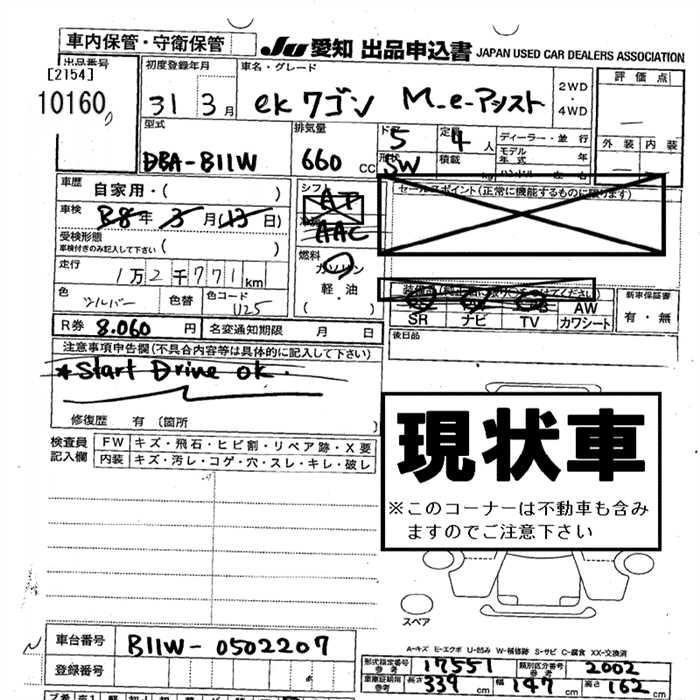 車内保管・守衛保管
JU 愛知 出品申込書 JAPAN USED CAR DEALERS ASSOCIATION
出品番号 初度登録年月 車名・グレード 2WD ・ 4WD 評価点
[2154]
10160 31 3月 ekワゴン M-e-アシスト
型式 排気量 ドア 5 定員 4人 ディーラー・並行 外装 内装
DBA-B11W 660 CC 形状 SW 積載 kg モデル年式 年
ハンドル 左・右
車歴 自家用・( ) シフト AT セールスポイント(正常に機能するものに限ります)
車検 R8年3月(13日) AAC
受検形態 車検付きのみ記入して下さい ( ) 燃料
走行 1万2千771km ガソリン
色 シルバー 色替 色コード U25 軽・油 ( )
SR ナビ TV AW カワシート 新車保証書 有・無
R券 8.060円 名変通知期限 月 日 後日品
注意事項申告欄(不具合内容等は具体的に記入して下さい)
*Start Drive ok.
修復歴 有(箇所 )
現状車
※このコーナーは不動車も含み
ますのでご注意下さい
検査員記入欄 FW キズ・飛石・ヒビ割・リペア跡・X要
内装 キズ・汚レ・コゲ・穴・スレ・キレ・破レ
スペア
A-キズ E-エクボ U-凹み W-補修跡 S-サビ C-腐食 XX-交換済
車台番号 B11W-0502207
登録番号
形式指定番号 参考 17551 類別区分番号 参考 2002
車庫証明用 参考 長さ 339cm 幅 147cm 高さ 162cm